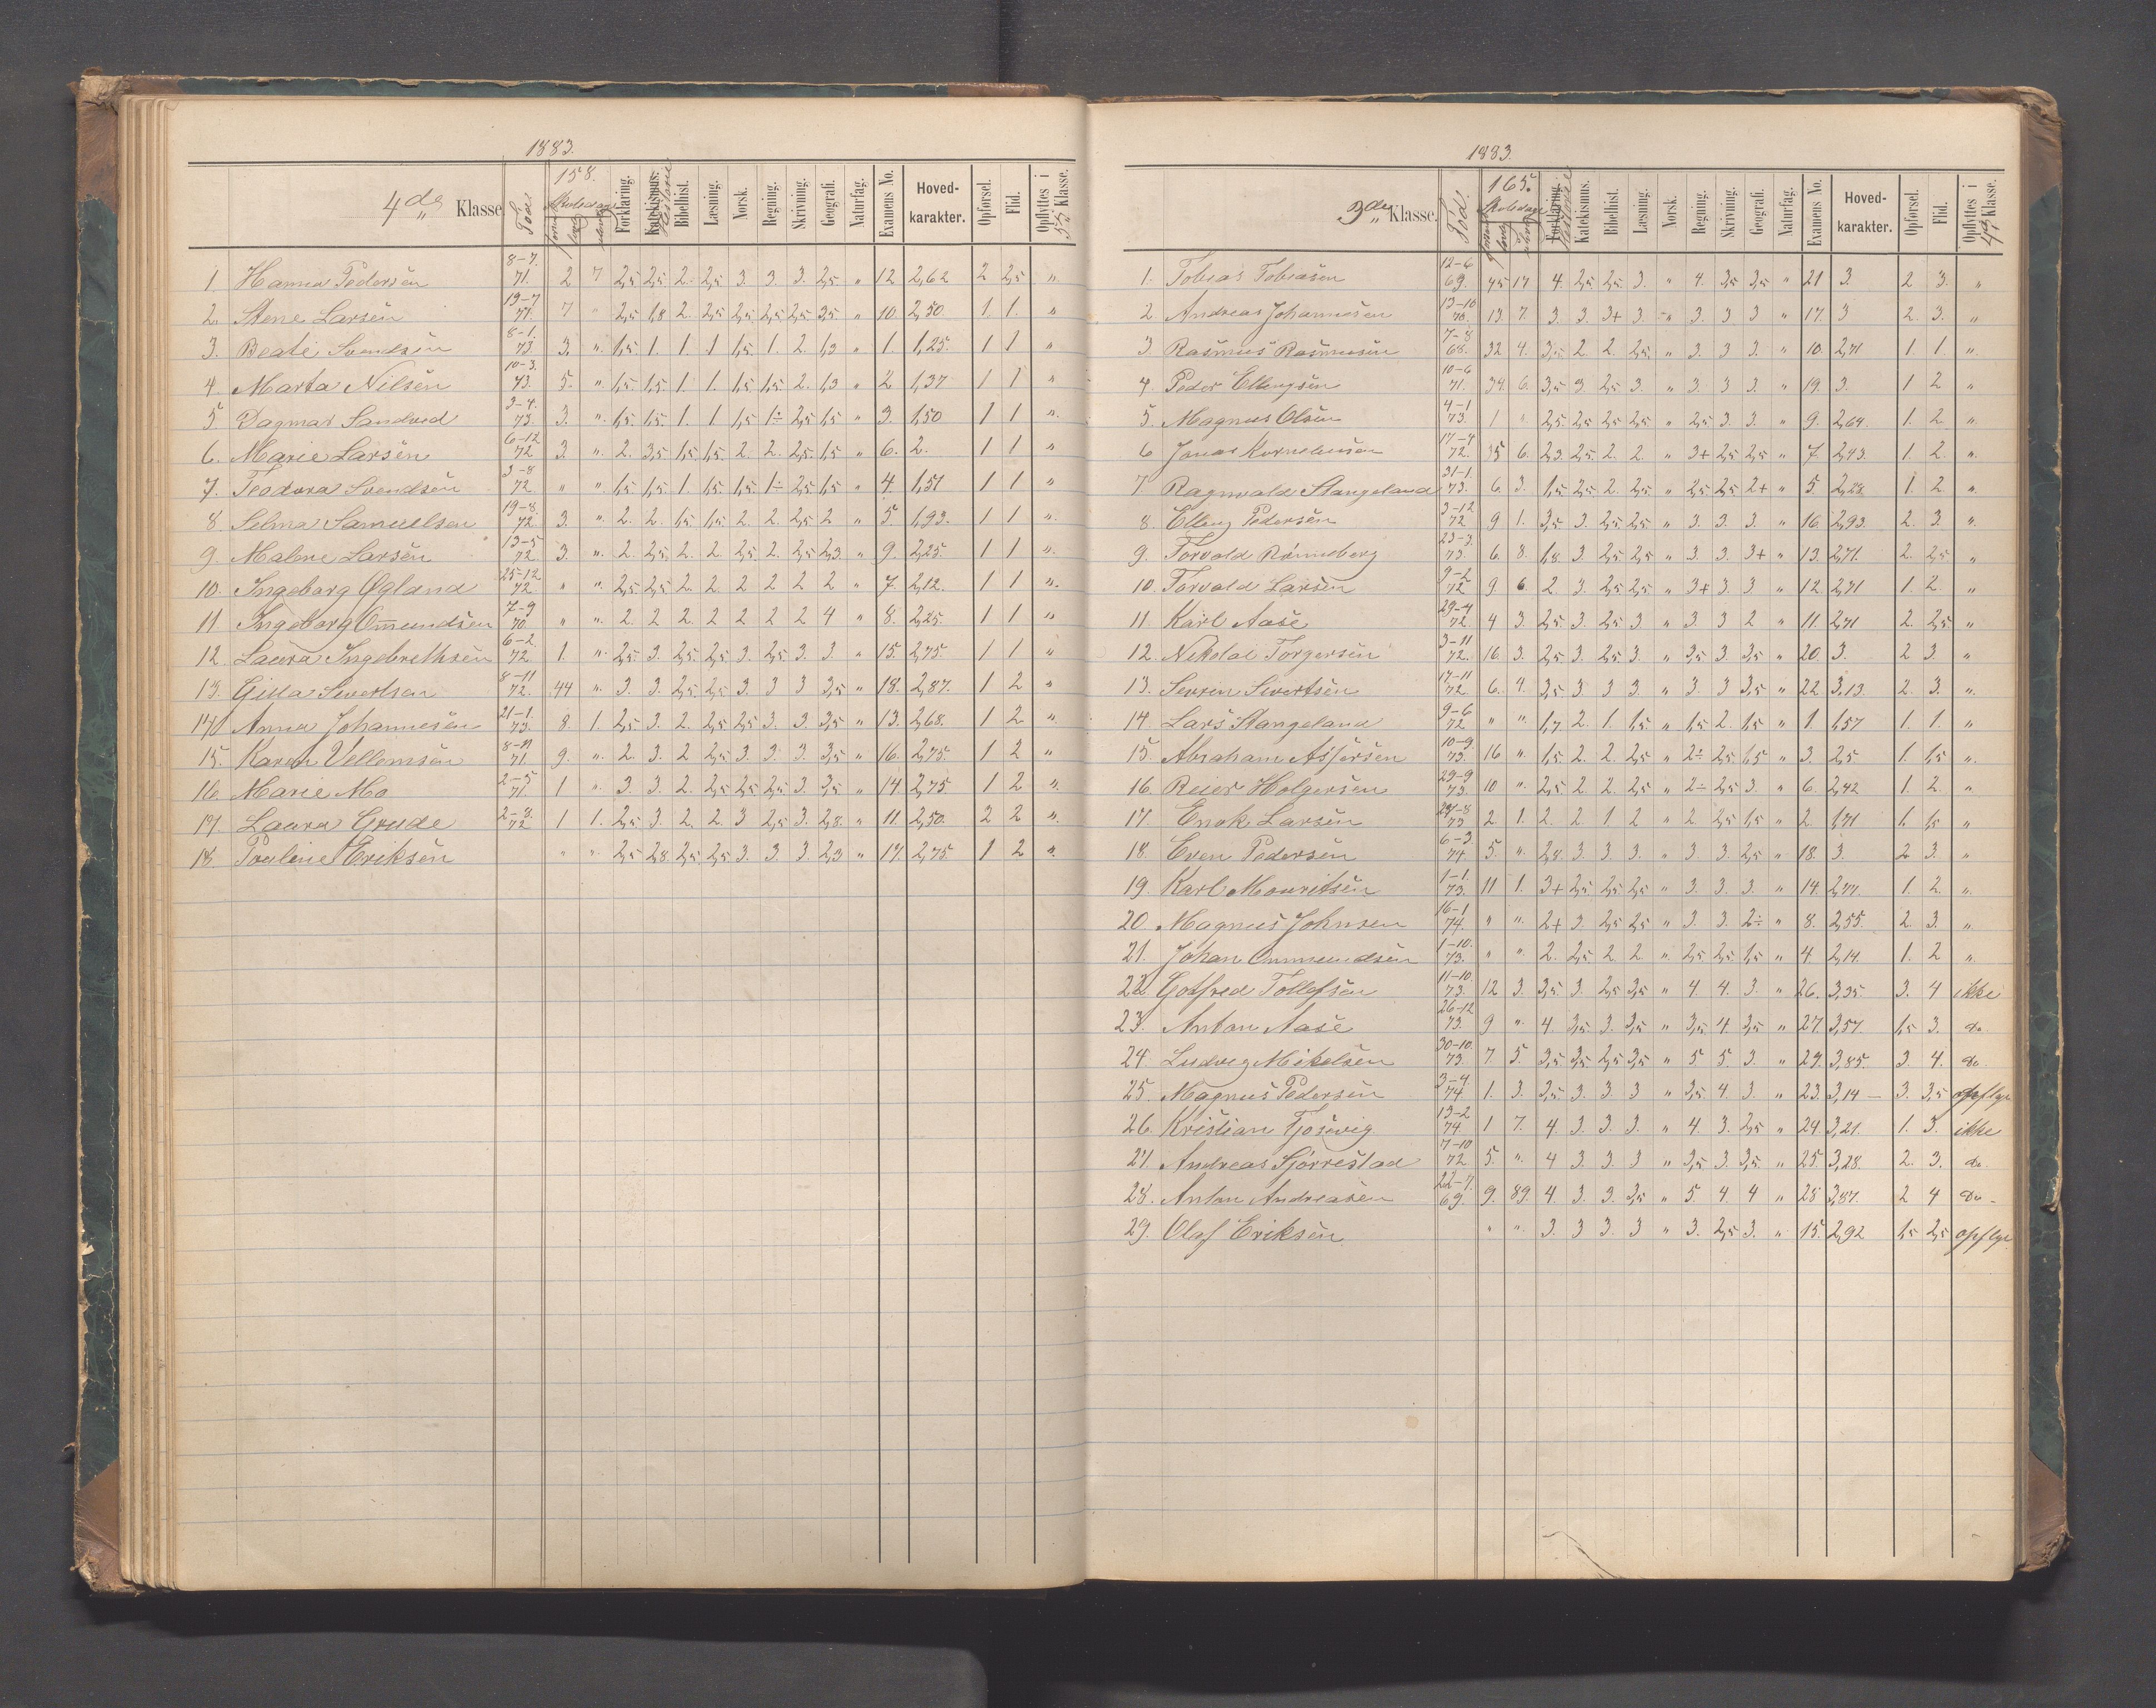 1883.
4de Klasse
Född
158.
Skoledage
Forklaring.
Katekismus.
Bibelhist.
Læsning.
Norsk.
Regning.
Skrivning.
Geografi.
Naturfag.
Examens No.
Hoved-karakter.
Opførsel.
Flid.
Opflyttes i 5te Klasse.
1. Hanna Pedersen 8-7. 71. 2 7 2,5 2,5 2. 2,5 3. 3. 3. 2,5 " 12 2,62 2 2,5 "
2. Stene Larsen 19-7 71. 7 " 2,5 1,8 2. 2,5 2,5 2,5 2,5 3,5 " 10. 2,50. 1 1. "
3. Beate Svendsen 8-1. 73 3. " 1,5 1. 1. 1 1,5 1. 2. 1,3 " 1. 1,25. 1 1 "
4. Marta Nilsen 10-3. 73. 5. " 1,5 1,5 1. 1. 1,5 1,5 2. 1,3 " 2 1,37 1 1 "
5. Dagmar Sandved 3-4. 73. 3. " 1,5 1,5 1. 1 1,5 1÷ 2,5 1,5 " 3. 1,50 1 1 "
6. Marie Larsen 6-12 72 3. " 2. 3,5 1,5 1,5 2. 2. 2,5 1,5 " 6. 2. 1 1 "
7. Teodora Svendsen 3-8 72 " " 1,5 1,5 1. 1,5 1,5 1÷ 2,5 1,5 " 4. 1,51 1 1 "
8. Selma Samuelsen 19-8. 72 3. " 2. 2. 1,5 1,5 2. 2. 2,5 2 " 5. 1,93. 1 1 "
9. Malene Larsen 13-5 72 3. " 2. 2,5 2. 2. 2,5 2. 2,5 2,3 " 9. 2,25. 1 1 "
10. Ingeborg Øgland 25-12 72 " " 2,5 2,5 2. 2 2 2 2 2 " 7. 2,12. 1 1 "
11 Ingeborg Om̅undsen 7-9 70. " " 2 2 2. 2 2 2 2 4 " 8. 2,25. 1 1 "
12. Laura Ingebrethsen 6-2. 72 1. " 2,5 3. 2,5 2,5 3. 2,5 3. 3. " 15. 2,75. 1 1 "
13. Gina Sivertsen 8-11 72. 44 " 3. 3. 2,5 2,5 3. 3 3 3,5 " 18. 2,87. 1 2 "
14 Anna Johannesen 21-1. 73. 8 1. 2,5 3. 2. 2,5 2,5 3. 3. 3,5 " 13. 2,68. 1 2 "
15. Karen Vellemsen 8-11 71. 9. " 2. 3. 2 2,5 3. 3. 3. 3,5 " 16. 2,75. 1 2 "
16. Marie Mo 2-5 71. 1 " 3. 3. 2. 2,5 2,5 2,5 3. 3,5 " 14. 2,75 1 2 "
17. Laura Grude 2-8. 72 1 1. 2,5 3. 2. 2. 3 2,5 3. 2,8. " 11. 2,50. 2 2 "
18. Pouline Eriksen " " 2,5 2,8 2,5 2,5 3. 3. 3. 2,3 " 17. 2,75. 1 2 "
1883.
3de Klasse.
Född
165.
Skoledage
Forklaring.
Katekismus.
Bibelhist.
Læsning.
Norsk.
Regning.
Skrivning.
Geografi.
Naturfag.
Examens No.
Hoved-karakter.
Opførsel.
Flid.
Opflyttes i 4de Klasse.
1. Tobias Tobiasen 12-6 69. 45 17 4. 2,5 2,5 3. " 4. 3,5 3,5 " 21 3. 2 3. "
2 Andreas Johannesen 13-10 70. 13. 7. 3. 3. 3+ 3. " 3. 3 3 " 17. 3 2. 3. "
3. Rasmus Rasmusen 7-8 68. 32 4. 3,5 2 2. 2,5 " 3. 3 3. " 10. 2,71 1. 1. "
4. Peder Ellingsen 10-6 71. 34. 6. 3,5 3 2,5 3. " 3. 3 3. " 19 3. 1 2 "
5. Magnus Olsen 4-1 73. 1 " 2,5 2,5 2,5 2,5 " 2,5 3. 3. " 9. 2,64. 1. 2. "
6 Jonas Kornelensen 17-4 72. 35 6. 2,3 2,5 2. 2. " 3+ 2,5 2,5 " 7 2,43. 1. 2. "
7 Ragnvald Stangeland 31-1. 73. 6. 3. 1,5 2,5 2. 2,5 " 2,5 2,5 2+ " 5. 2,28. 1. 2 "
8. Elling Pedersen 3-12 72 9 1. 3,5 3. 2,5 2,5 " 3. 3. 3. " 16. 2,93. 2. 3. "
9. Torvald Rønneberg 23-3. 73. 6. 8. 1,8 3 2,5 2,5 " 3. 3. 3+ " 13. 2,71. 2. 2,5 "
10. Torvald Larsen 9-2 72 9 6. 2 3. 2,5 2,5 " 3+ 3. 3 " 12. 2,71 1. 2. "
11. Karl Aase 29-4 72 4 3. 2,5 3. 2,5 3 " 3 3 2 " 11. 2,71 2. 2,5 "
12. Nikolai Torgersen 3-11 72. 16. 3. 2,5 3. 2,5 3. " 3,5 3. 3,5 " 20. 3. 2 3. "
13. Serren Sivertsen 17-11 72 6. 4. 3,5 3. 3 3. " 3. 3 3,5 " 22. 3,13. 2. 3. "
14. Lars Stangeland 9-6 72 " " 1,7 2. 1. 1,5 " 1,5 2. 1,5 " 1 1,57 1. 1. "
15. Abraham Asjersen 10-9. 73. 16 " 1,5 2. 2. 2,5 " 2÷ 2,5 1,5 " 3. 2,5 1. 1,5 "
16. Reier Holgersen 29-9 73. 10 " 2,5 2. 2. 2,5 " 2÷ 2,5 3. " 6. 2,42 1. 2. "
17. Enok Larsen 24-8 73 2 1. 2. 2. 1 2 " 2. 2,5 1,5 " 2. 1,71 1. 1,5 "
18. Even Pedersen 6-3. 74 5. " 2,8 3. 3. 3. " 3 3. 2,5 " 18. 3. 2 3. "
19. Karl Mouritsen 1-1. 73. 11 1. 3+ 2,5 2,5 2,5 " 3. 3. 3. " 14. 2,71. 1. 2. "
20. Magnus Johnsen 16-1 74. " " 2+ 3. 2,5 2,5 " 3 3. 2÷ " 8. 2,55. 2. 3. "
21. Johan Ommundsen 1-10. 73. " " 2. 2,5 2. 2. " 2,5 2,5 1,5 " 4. 2,14. 1. 2 "
22. Gotfred Tollefsen 11-10. 73. 12 3. 3,5 3. 2,5 3,5 " 4. 4. 3. " 26. 3,35. 3. 4 ikke
23. Anton Aase 26-12 73. 9 " 4. 3,5 3. 3,5 " 3,5 4. 3,5 " 27. 3,57. 1,5 3. do
24. Ludvig Mikelsen 30-10. 73. 7. 5. 3,5 3,5 2,5 3,5 " 5. 5. 3. " 29. 3,85. 3 4. do
25. Magnus Pedersen 3-4. 74 1. 3. 3,5 3. 3. 3 " 3,5 4. 3. " 23. 3,14 — 3. 3,5 opflyt
26. Kristian Fjosevig 13-2 74. 1 7. 4. 3. 3. 3. " 4. 3. 2,5 " 24. 3,21. 1. 3. ikke
27. Andreas Sjørrestad 7-10 72 5. " 4 3. 3. 3 " 3,5 3. 3,5 " 25. 3,28. 2. 3. do
28. Anton Andreasen 22-7. 69. 9. 89. 4. 3. 3. 3,5 " 5. 4. 4 " 28 3,87. 2 4 do
29. Olaf Eriksen " " 3. 3 3. 3 " 3. 2,5 3. " 15. 2,92 1,5 2,5 opflyt